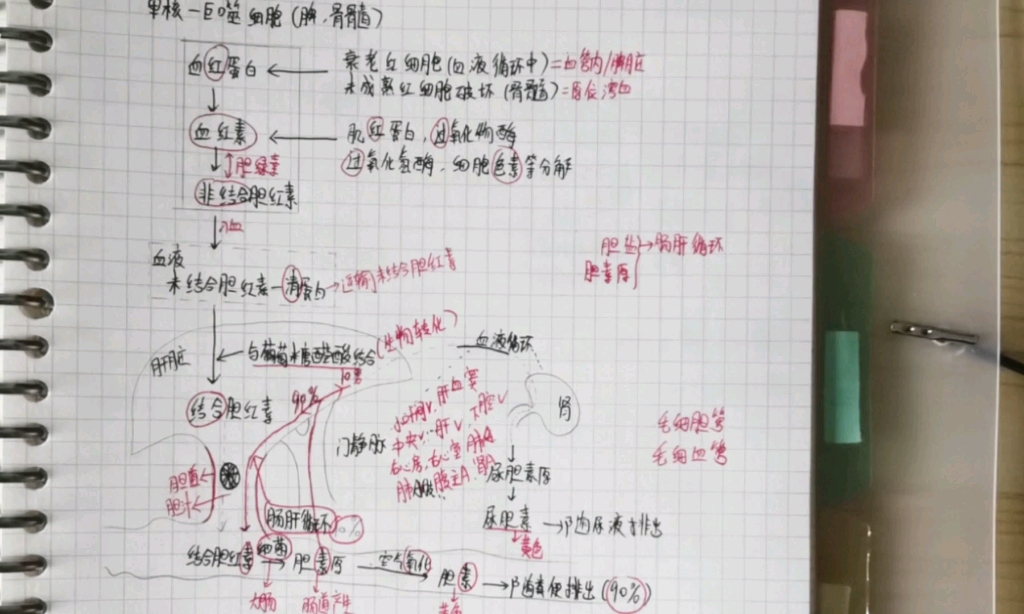 单核一巨噬细胞(脾、骨髓)
血红蛋白 ← 衰老红细胞(血液循环中)=血管内/脾脏
未成熟红细胞破坏(骨髓)=原位溶血
血红素 ← 肌红蛋白, 过氧化物酶
过氧化氢酶、细胞色素等分解
胆绿素
非结合胆红素
入血
血液
未结合胆红素-清蛋白→运输未结合胆红素
胆盐
胆素原
→肠肝循环
肝脏
与葡萄糖醛酸结合(生物转化)
血液循环
结合胆红素
90%
门静脉
小叶间V、肝血窦
中央V、肝V、下腔V
右心房、右心室、肺A
肾
毛细胆管
毛细血管
尿胆素原
尿胆素 → 随尿液排出
黄色
胆道
胆汁
肠肝循环
结合胆红素 细菌→ 胆素原 空气氧化→ 胆素 → 随粪便排出(90%)
大肠
肠道产生